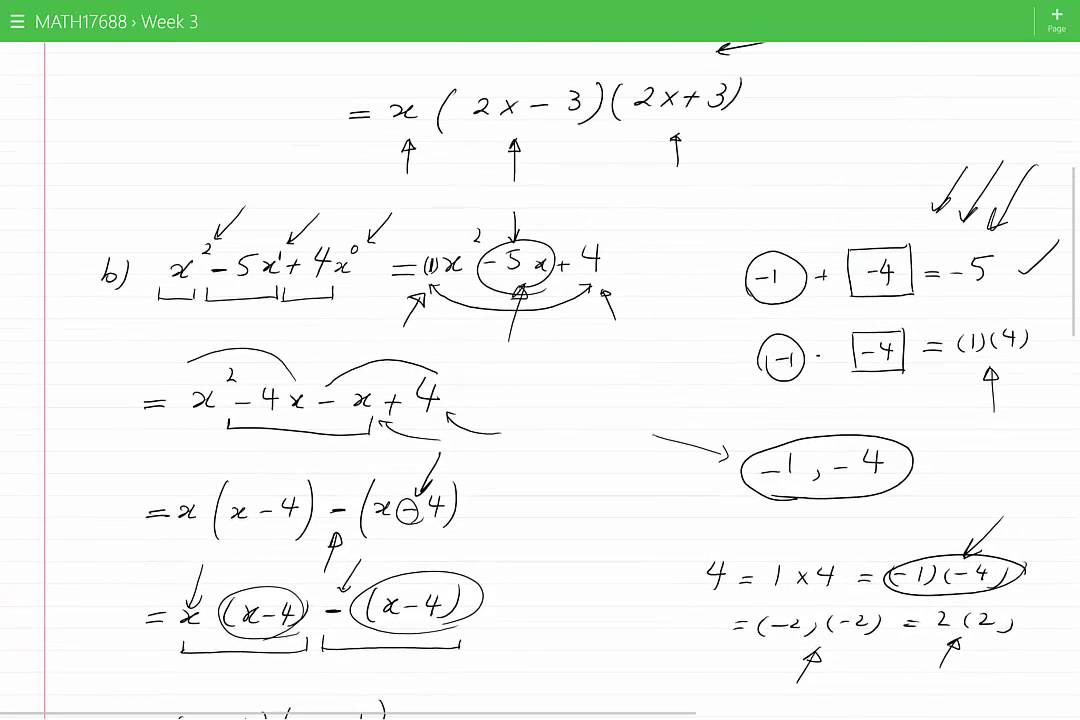 MATH17688 › Week 3
Page
= x ( 2x - 3)( 2x + 3)
b) x² - 5x¹ + 4x⁰ = (1)x² - 5x + 4
-1 + -4 = -5
-1 · -4 = (1)(4)
= x² - 4x - x + 4
-1, -4
= x (x - 4) - (x - 4)
4 = 1 × 4 = (-1)(-4)
= x (x-4) - (x-4)
= (-2)(-2) = 2(2)